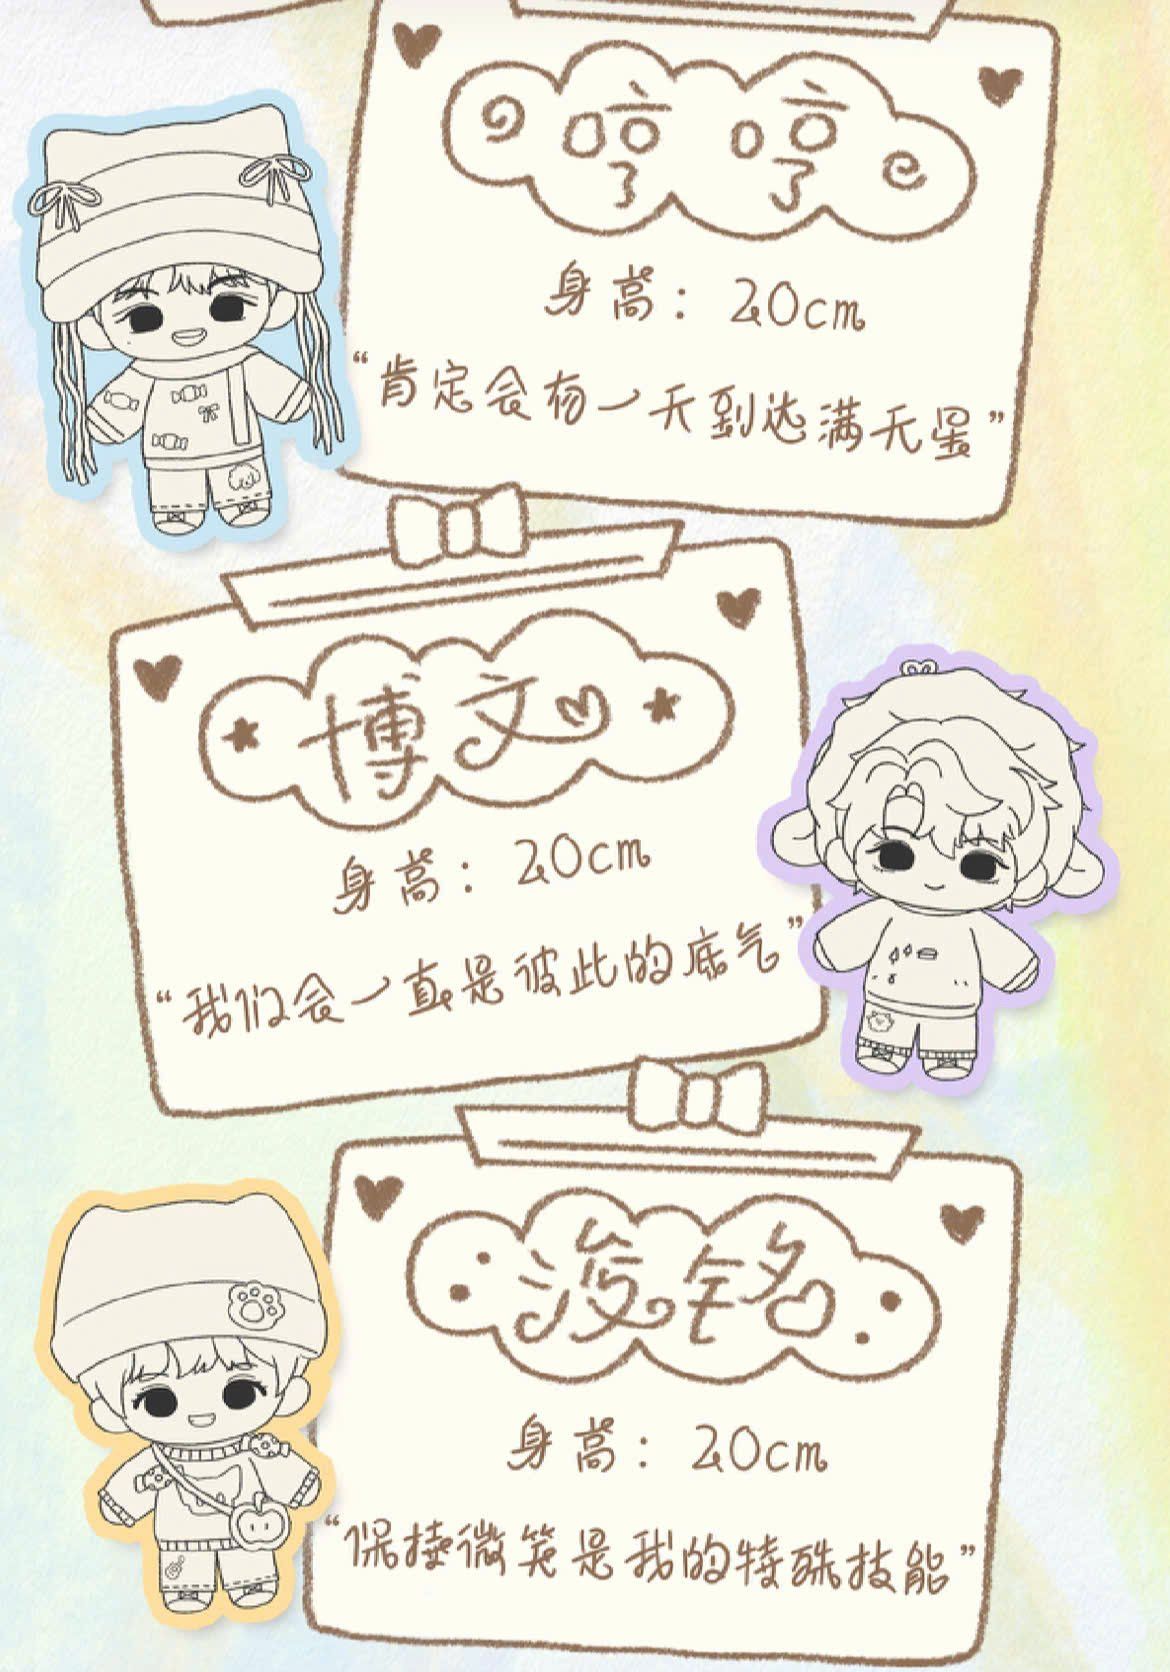 哼哼
身高：20cm
“肯定会有一天到达满天星”
博文
身高：20cm
“我们会一直是彼此的底气”
浚铭
身高：20cm
“保持微笑是我的特殊技能”